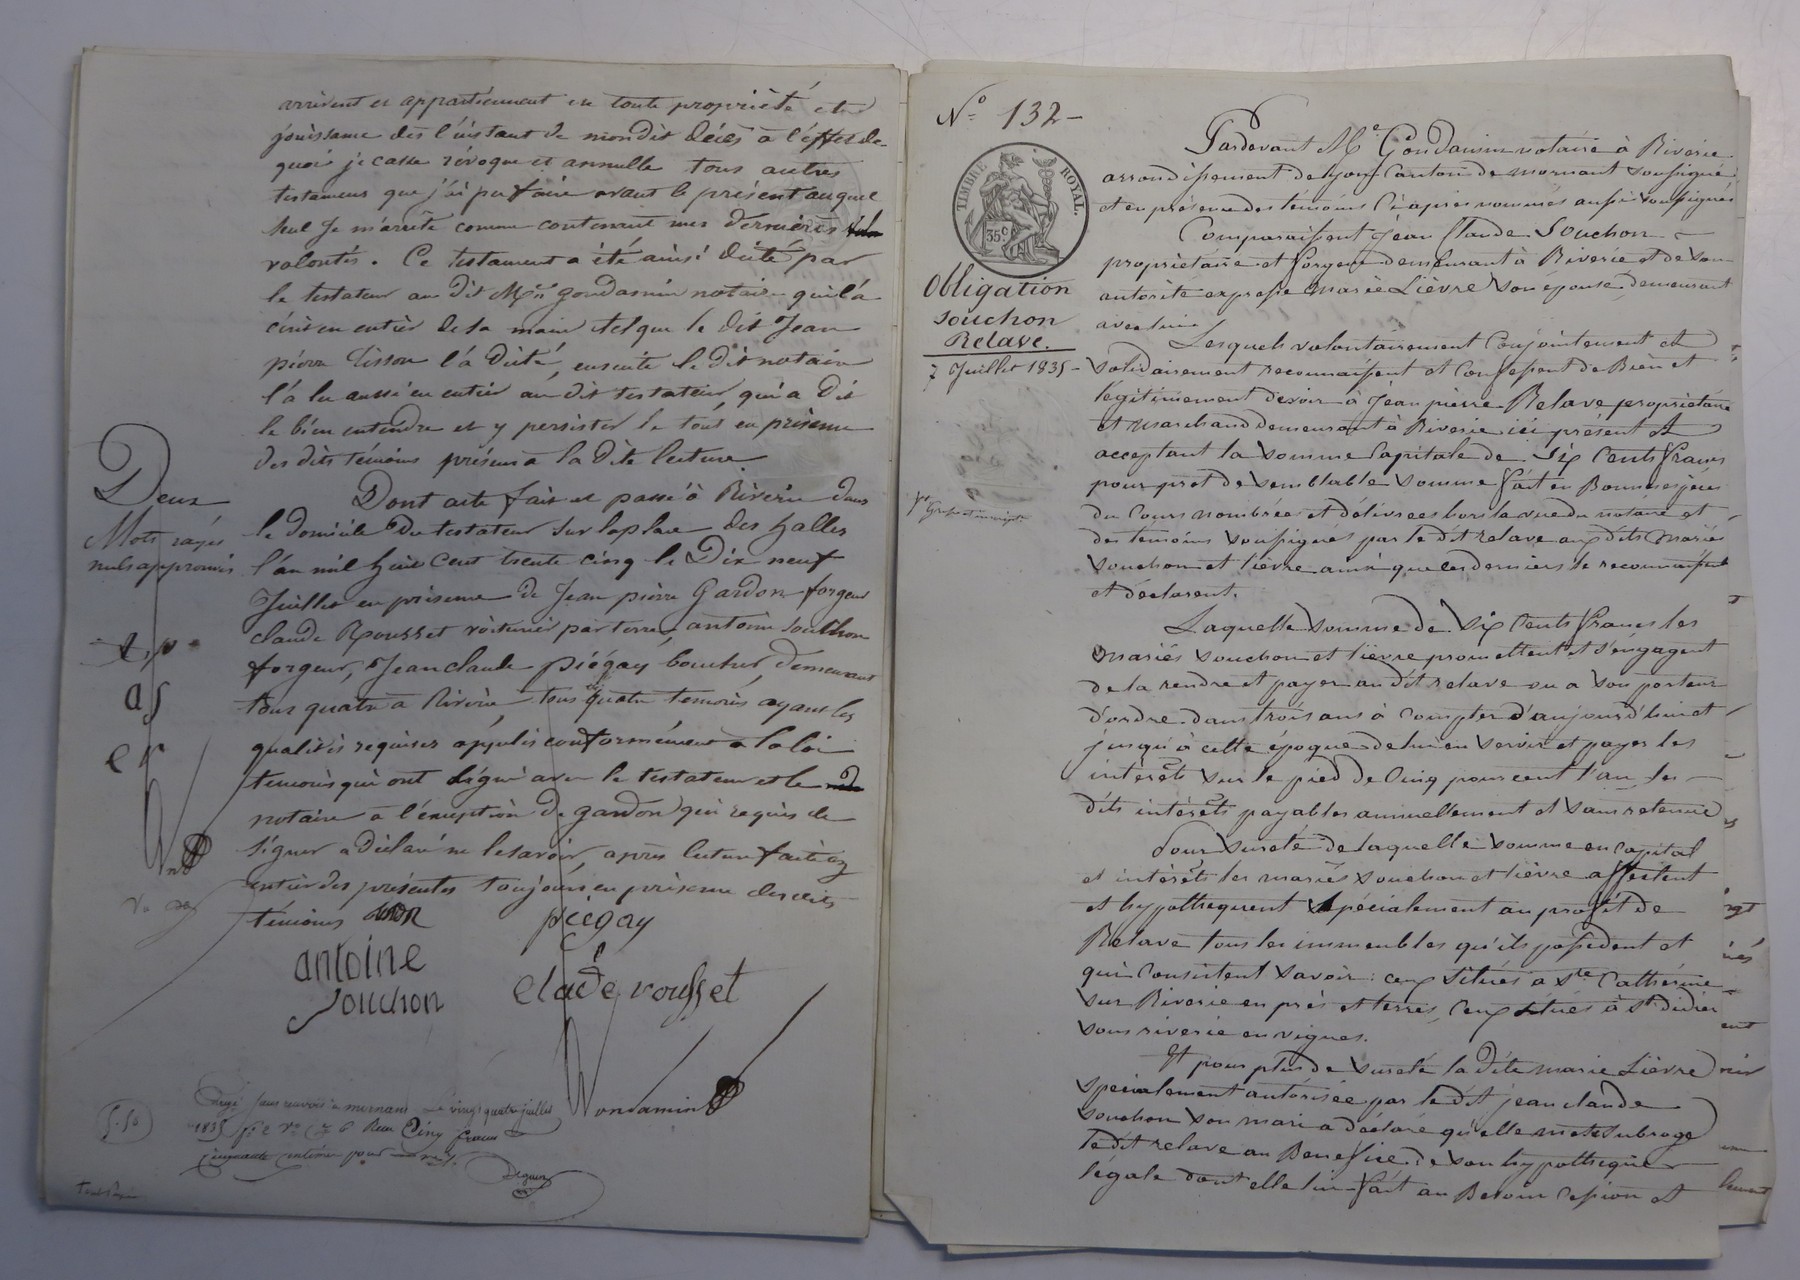 arrivent et appartiennent en toute propriété et
jouissance dès l'instant de mondit décès à l'effet de
quoi je casse révoque et annulle tous autres
testamens que j'ai pu faire avant le présent auquel
seul je m'arrête comme contenant mes dernières
volontés. Ce testament a été ainsi dicté par
le testateur au dit Me gondamin notaire qui l'a
écrit en entier de sa main tel que le dit Jean
pierre Tisson l'a dicté, ensuite le dit notaire
l'a lu aussi en entier au dit testateur, qui a dit
le bien entendre et y persister le tout en présence
des dits témoins présens a la dite lecture
Dont acte fait et passé à Riverie dans
le domicile du testateur sur la place des halles
l'an mil huit cent trente cinq le Dix neuf
Juillet en présence de Jean pierre Gardon forgeur
claude Rousset voiturier par terre, antoine souchon
forgeur, Jean claude piégay boucher, demeurant
tous quatre a Riverie, tous quatre temoins ayant les
qualités requises appelés conformément a la loi
temoins qui ont signé avec le testateur et le
notaire a l'éxception de gardon qui requis de
signer a déclaré ne le savoir, après lecture faite en
entier des présentes toujours en présence des dits
témoins
Deux
Mots rayés
nuls approuvés
as
er
piégay
antoine
souchon
clade rousset
Gondamin
Engé sans renvois à mornant Le vingt quatre juillet
1835 fo 2 Vo C 6 Reçu Cinq francs
cinquante centimes pour
5.50
No 132
TIMBRE ROYAL.
35c
Obligation
souchon
Relave.
7 Juillet 1835
Grosse et inscription
Pardevant Me Gondamin notaire à Riverie
arrondissement de Lyon Canton de mornant soussigné
et en présence des témoins Ci après nommés aussi soussignés
Comparaissent Jean Claude Souchon
propriétaire et forgeur demeurant à Riverie et de son
autorité expresse Marie Lièvre son épouse demeurant
avec lui
Lesquels volontairement Conjointement et
solidairement reconnaissent et Confessent de Bien et
légitimement devoir à Jean pierre Relave propriétaire
et marchand demeurant à Riverie ici présent et
acceptant la somme Capitale de Six Cents francs
pour prêt de semblable somme fait en Bonnes espèces
du Cours nombrées et délivrées hors la vue du notaire et
des témoins soussignés par le dit relave aux dits mariés
souchon et lièvre ainsi que ces derniers le reconnaissent
et déclarent.
Laquelle somme de Six Cents francs les
mariés souchon et lièvre promettent et s'engagent
de la rendre et payer au dit relave ou a son porteur
d'ordre dans trois ans à Compter d'aujourd'hui et
jusqu'à cette époque de lui en servir et payer les
intérêts sur le pied de Cinq pour cent l'an les
dits intérêts payables annuellement et sans retenue
Pour sureté de laquelle somme en capital
et intérêts les mariés souchon et lièvre affectent
et hypothequent spécialement au profit de
Relave tous les immeubles qu'ils possedent et
qui Consistent savoir : ceux situés a Ste Catherine
sur Riverie en prés et terres, Ceux situés à St didier
sous riverie en vignes.
Et pour plus de sureté la dite marie Lièvre
spécialement autorisée par le dit jean claude
souchon son mari a déclaré qu'elle met et subroge
le dit relave au Benefice de son hypothèque
légale dont elle lui fait au Besoin Cession et